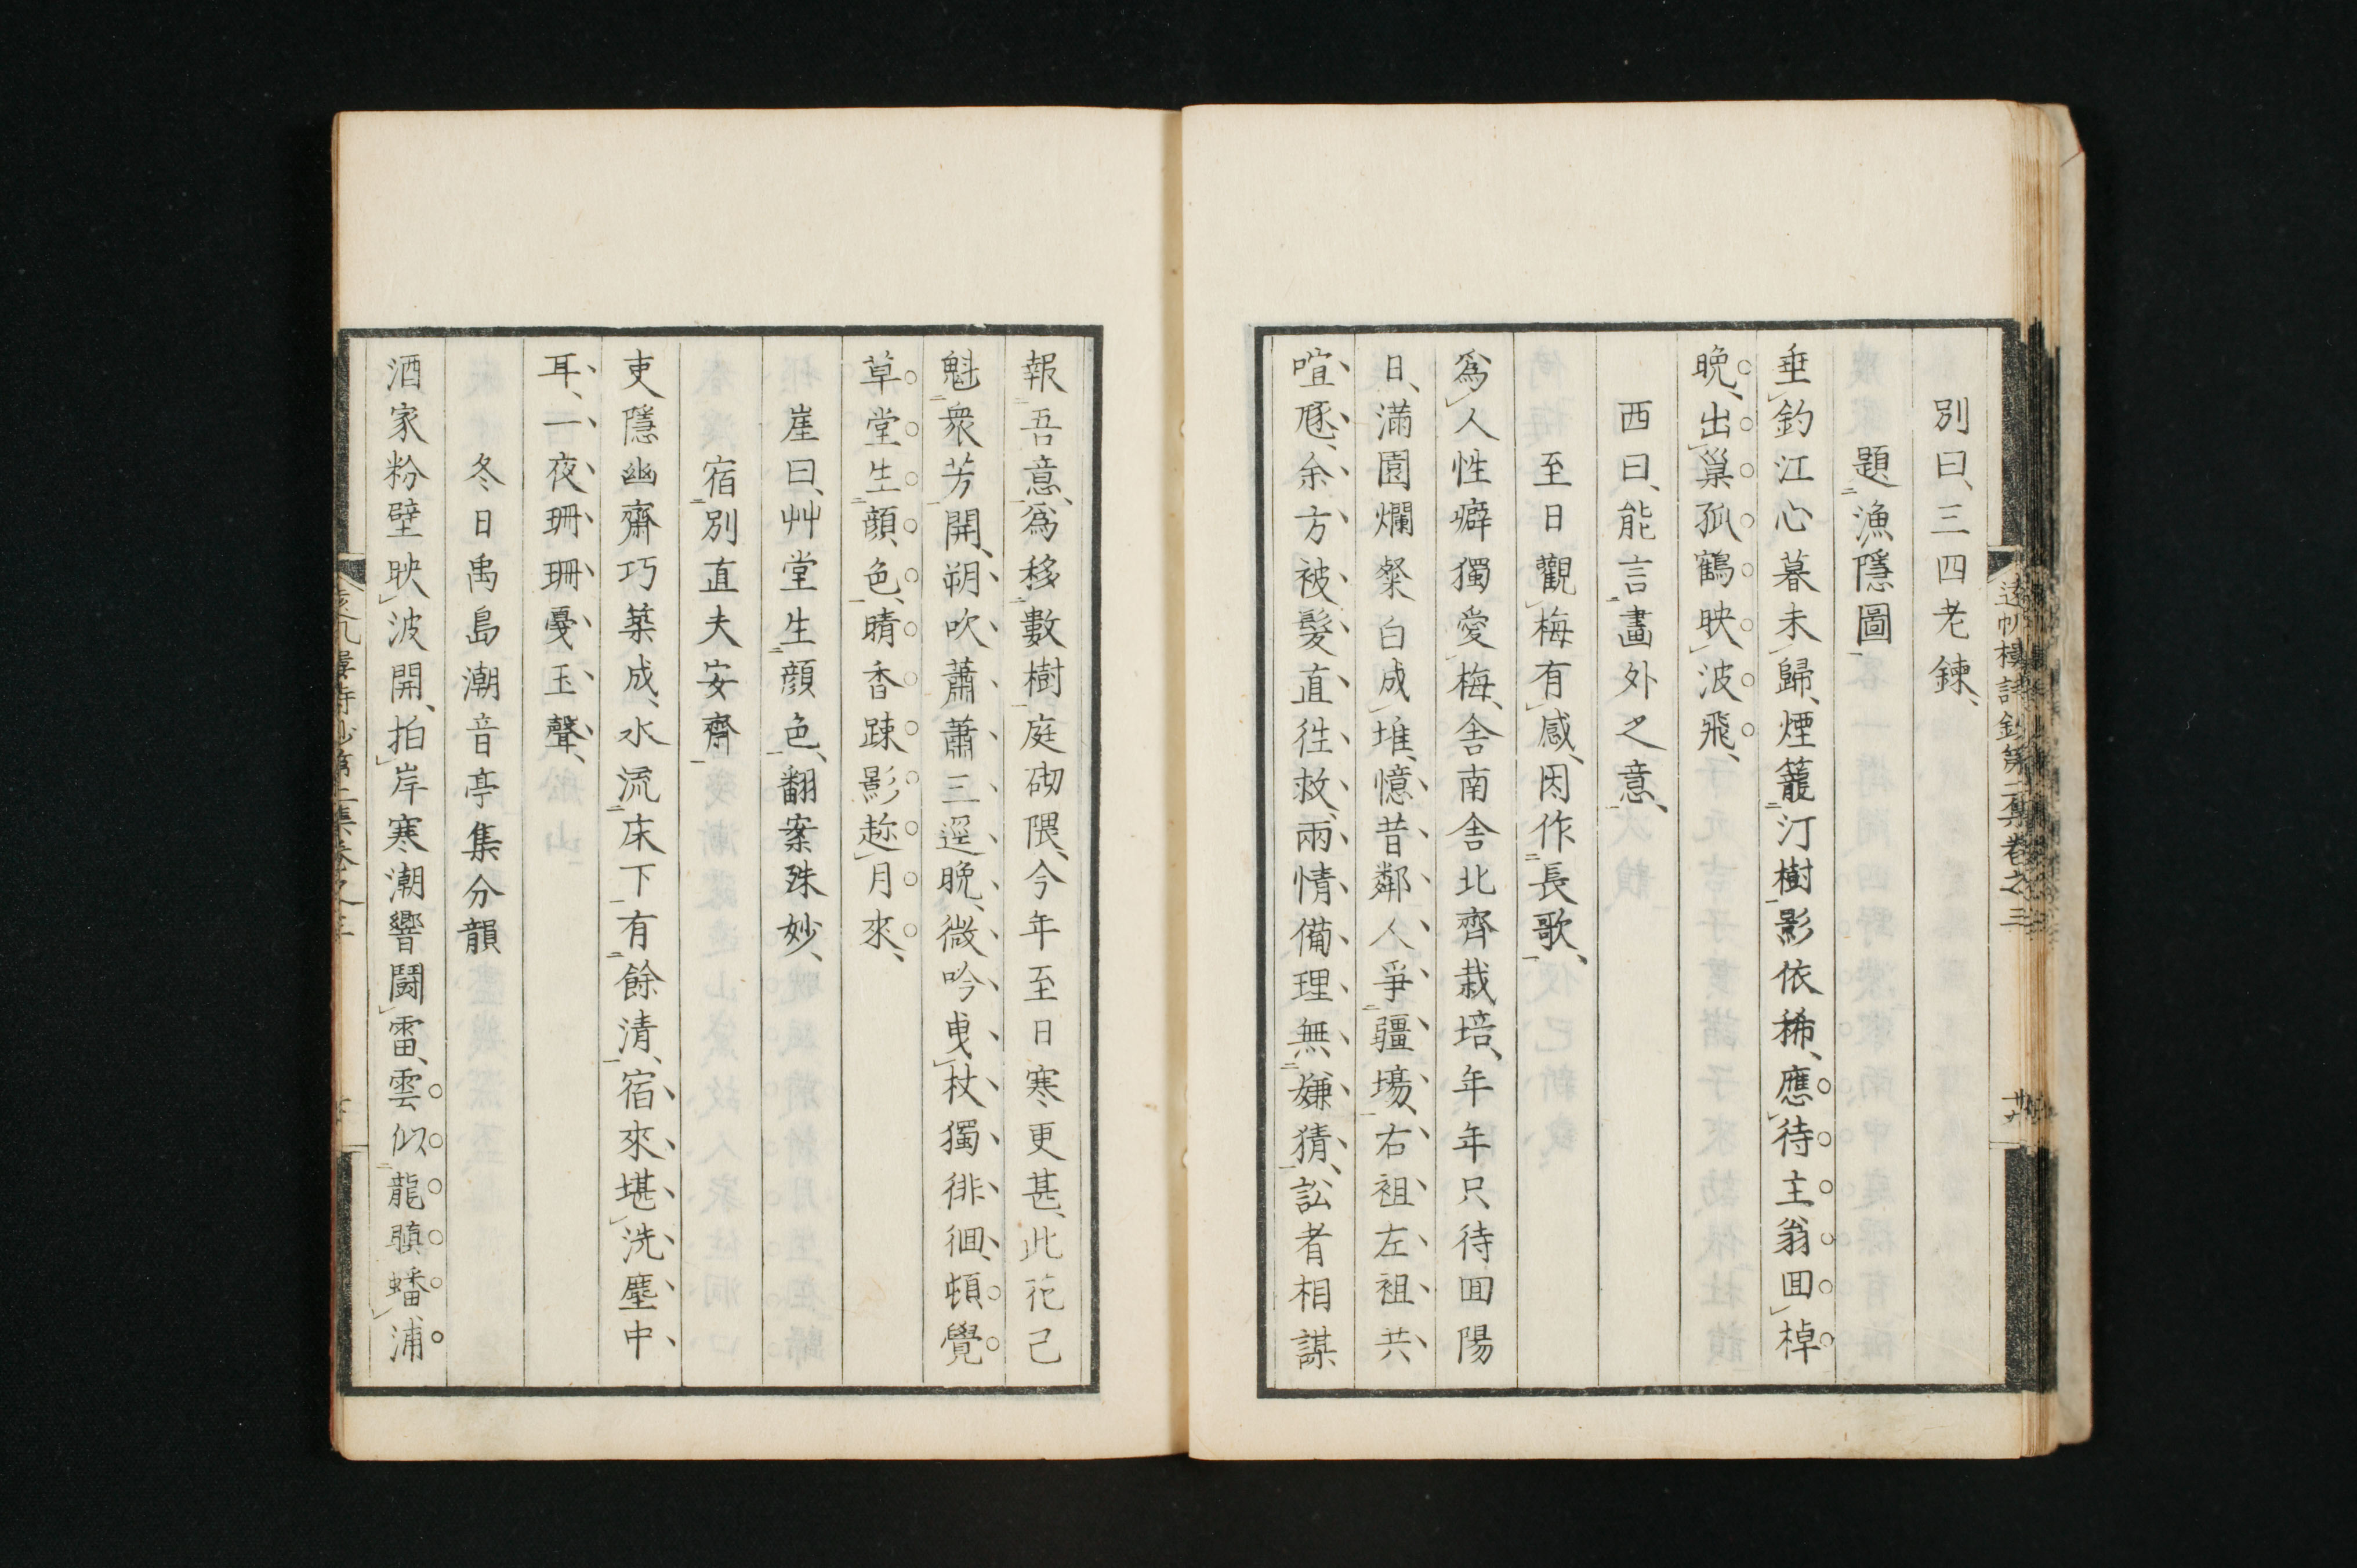 別曰、三四老鍊、
題漁隱圖
垂釣江心暮未歸、煙籠汀樹影依稀、應待主翁囬棹
晩、出巢孤鶴映波飛、
西曰、能言畫外之意、
至日觀梅有感、因作長歌、
爲人性癖獨愛梅、舎南舎北齊栽培、年年只待囬陽
日、滿園爛粲白成堆、憶昔鄰人爭疆場、右袒左袒共
喧豗、余方被髮直徃救、兩情備理無嫌猜、訟者相謀
報吾意、爲移數樹庭砌隈、今年至日寒更甚、此花己
魁衆芳開、朔吹蕭蕭三逕晩、微吟曳杖獨徘徊、頓覺
草堂生顔色、晴香踈影趂月來、
崖曰、艸堂生顔色、翻案殊妙、
宿別直夫安齋
吏隱幽齋巧築成、水流床下有餘清、宿來堪洗塵中
耳、一夜珊珊戞玉聲、
冬日禹島潮音亭集分韻
酒家粉壁映波開、拍岸寒潮響鬪雷、雲似龍驥蟠浦